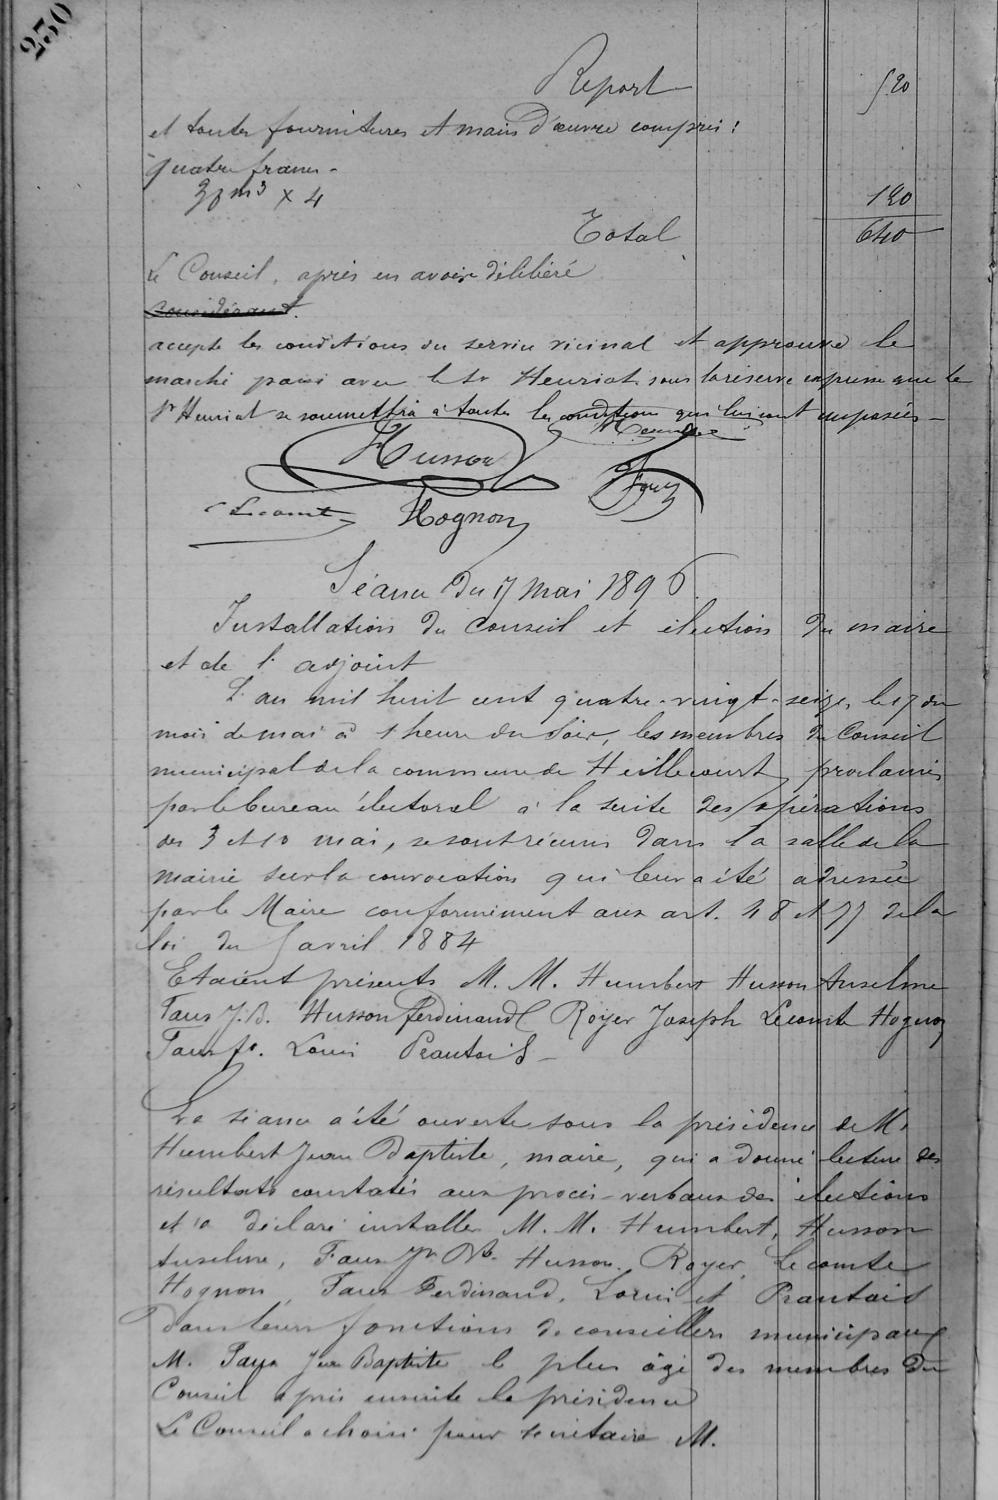 230
Report 520
et toutes fournitures et main d'œuvre compris :
quatre francs -
30 m3 x 4 120
Total 640
Le Conseil, après en avoir délibéré
considérant.
accepte les conditions du service vicinal et approuve le
marché passé avec le Sr Henriat sous la réserve expresse que le
Sr Henriat se soumettra à toutes les conditions qui lui sont imposées -
Husson
Lecomte Hognon
Séance du 17 mai 1896
Installation du Conseil et élection du maire
et de l'adjoint
L'an mil huit cent quatre-vingt-seize, le 17 du
mois de mai à 1 heure du soir, les membres du Conseil
municipal de la commune de Heillecourt, proclamés
par le bureau électoral à la suite des opérations
des 3 et 10 mai, se sont réunis dans la salle de la
mairie sur la convocation qui leur a été adressée
par le Maire conformément aux art. 48 et 77 de la
loi du 5 avril 1884
Etaient présents M. M. Humbert Husson Anselme
Faus J.B. Husson Ferdinand Royer Joseph Lecomte Hognon
Faus fd. Louis Prantois -
La séance a été ouverte sous la présidence de M.
Humbert Jean Baptiste, maire, qui a donné lecture des
résultats constatés aux procès-verbaux des élections
et a déclaré installer M. M. Humbert, Husson
Anselme, Faus Jn Bte Husson, Royer, Lecomte
Hognon, Faus Ferdinand, Louis et Prantois
dans leurs fonctions de conseillers municipaux
M. Faus Jean Baptiste le plus âgé des membres du
Conseil a pris ensuite la présidence
Le Conseil a choisi pour secrétaire M.